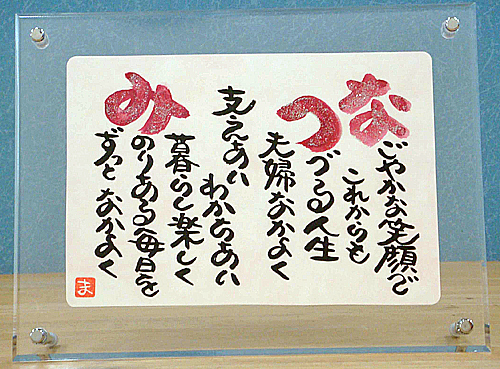 なごやかな笑顔で
これからも
つづる人生
夫婦なかよく
支えあい
わかちあい
暮らし楽しく
みのりある毎日を
ずっとなかよく
ま